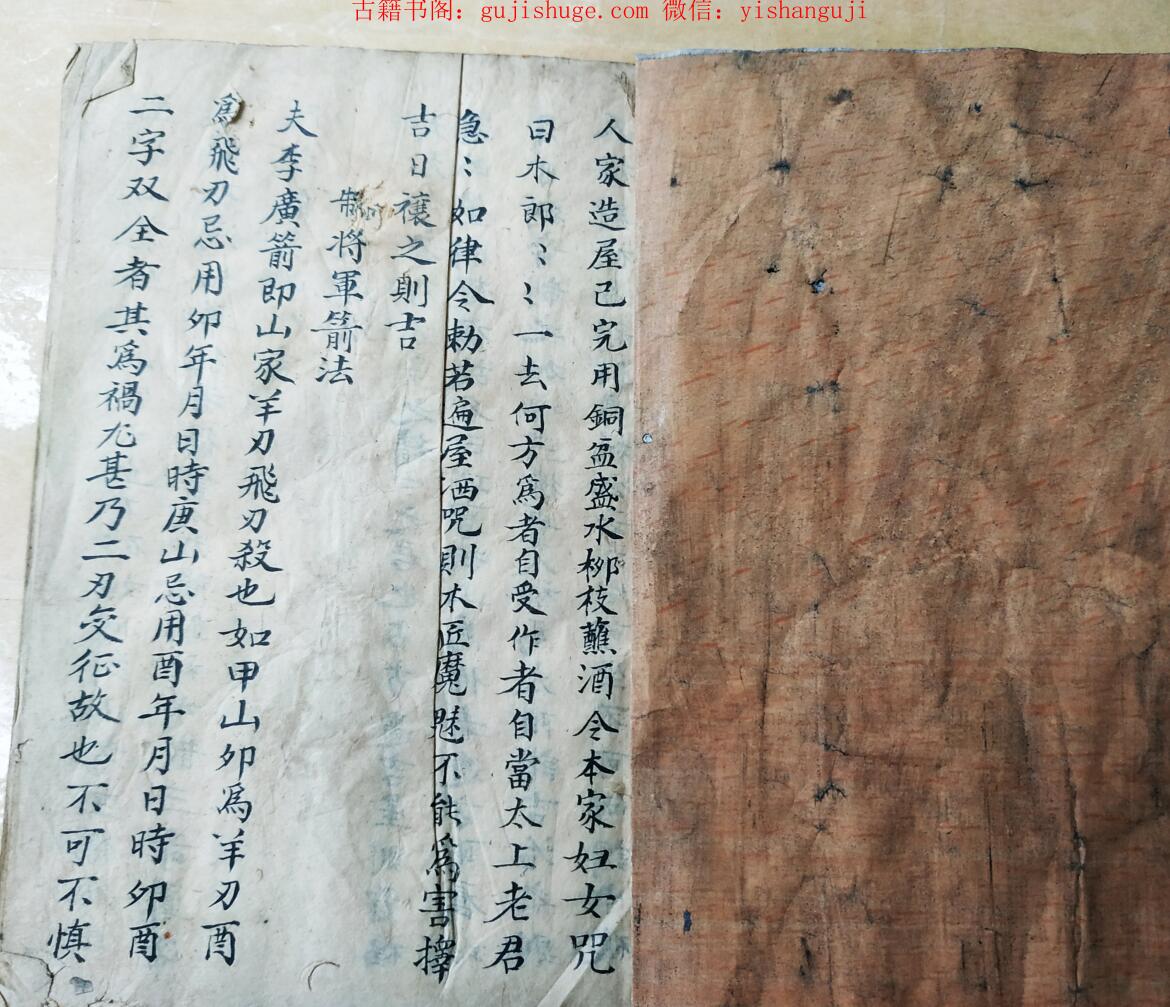 古籍书阁：gujishuge.com 微信：yishanguji
人家造屋己完用銅盆盛水柳枝蘸洒令本家妇女咒
曰木郎〻〻一去何方爲者自受作者自當太上老君
急〻如律令勅若遍屋洒咒則木匠魔魅不能爲害擇
吉日禳之則吉
制將軍箭法
夫李廣箭即山家羊刃飛刃殺也如甲山卯爲羊刃酉
爲飛刃忌用卯年月日時庚山忌用酉年月日時卯酉
二字双全者其爲禍尤甚乃二刃交征故也不可不慎